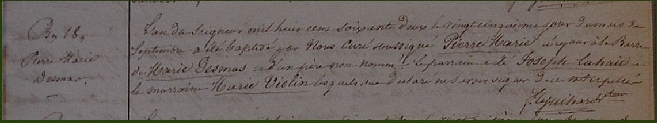 Bn 18.
Pierre Marie
Desmas.
L'an du Seigneur mil huit cens soixante deux le vingt cinquième jour du mois de
Septembre a été baptisé par Nous Curé soussigné Pierre Marie né ce jour à la Barre
de Marie Desmas et d'un père non nommé le parrain a été Joseph Lahaie
la marraine Marie Violin lesquels ont déclaré ne savoir signer de ce interpellés